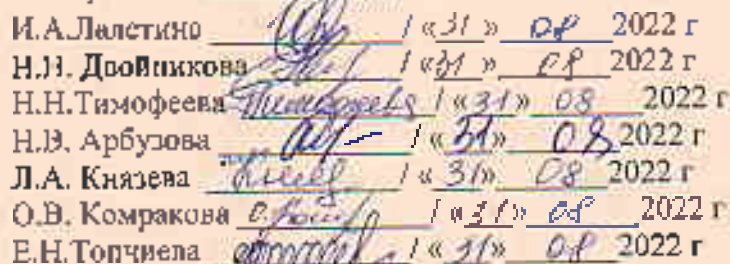 И.А.Лапстино / «31» 08 2022 г
Н.Н. Двойникова / «31» 08 2022 г
Н.Н.Тимофеева Тимофеева / «31» 08 2022 г
Н.В. Арбузова / «31» 08 2022 г
Л.А. Князева / «31» 08 2022 г
О.В. Комракова / «31» 08 2022 г
Е.Н.Топчиева / «31» 08 2022 г